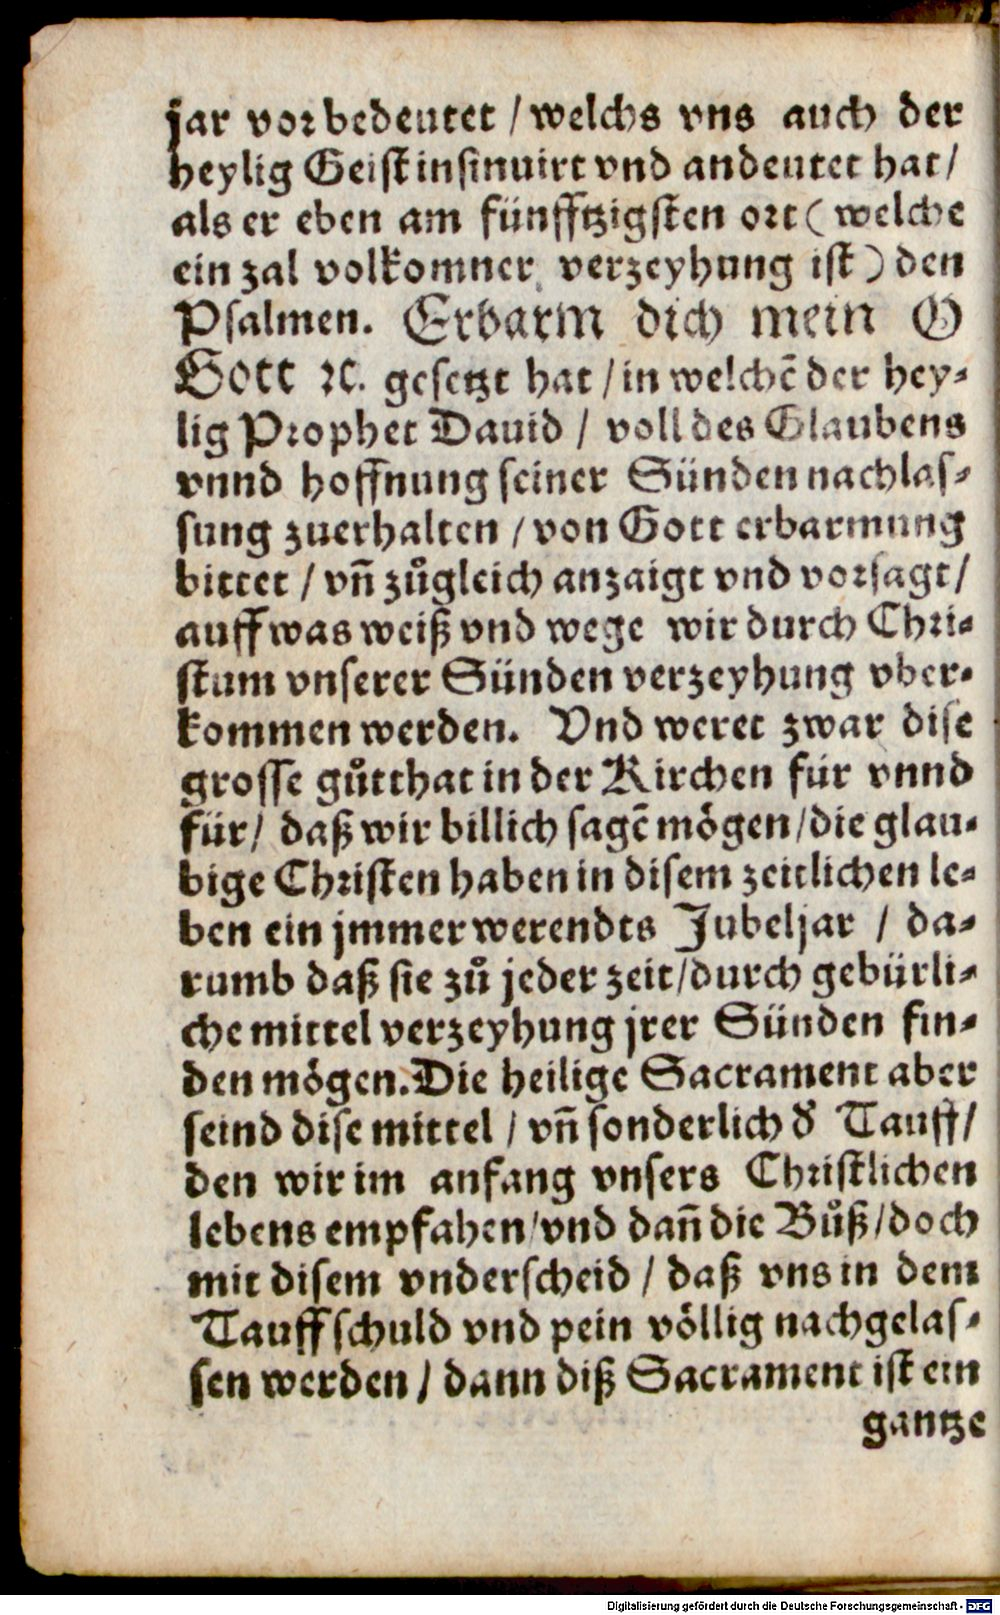 jar vorbedeutet / welchs vns auch der
heylig Geist insinuirt vnd andeutet hat /
als er eben am fünfftzigsten ort ( welche
ein zal volkomner verzeyhung ist ) den
Psalmen. Erbarm dich mein O
Gott ꝛc. gesetzt hat / in welchē der hey-
lig Prophet Dauid / voll des Glaubens
vnnd hoffnung seiner Sünden nachlas-
sung zuerhalten / von Gott erbarmung
bittet / vñ zůgleich anzaigt vnd vorsagt /
auff was weiß vnd wege wir durch Chri-
stum vnserer Sünden verzeyhung vber-
kommen werden. Vnd weret zwar dise
grosse gůtthat in der Kirchen für vnnd
für / daß wir billich sagē mögen / die glau-
bige Christen haben in disem zeitlichen le-
ben ein jmmerwerendts Jubeljar / da-
rumb daß sie zů jeder zeit / durch gebürli-
che mittel verzeyhung jrer Sünden fin-
den mögen. Die heilige Sacrament aber
seind dise mittel / vñ sonderlich d̕ Tauff /
den wir im anfang vnsers Christlichen
lebens empfahen / vnd dañ die Bůß / doch
mit disem vnderscheid / daß vns in dem
Tauff schuld vnd pein völlig nachgelas-
sen werden / dann diß Sacrament ist ein
gantze
Digitalisierung gefördert durch die Deutsche Forschungsgemeinschaft - DFG